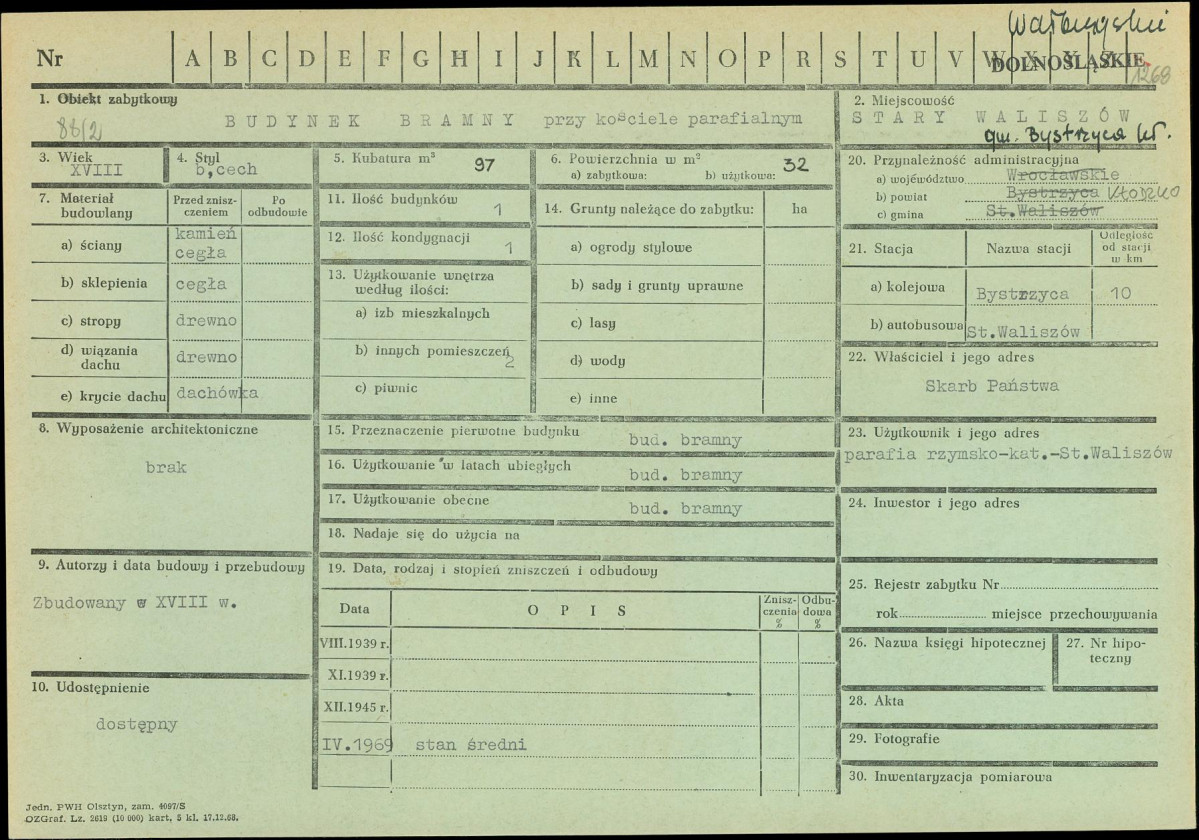 Wałbrzyskie
Nr A B C D E F G H I J K L M N O P R S T U V W X Y Z
DOLNOŚLĄSKIE
1268
1. Obiekt zabytkowy
88/2
BUDYNEK BRAMNY przy kościele parafialnym
2. Miejscowość
STARY WALISZÓW
gm. Bystrzyca Kł.
3. Wiek
XVIII
4. Styl
b,cech
5. Kubatura m³ 97
6. Powierzchnia w m²
a) zabytkowa: b) użytkowa: 32
7. Materiał budowlany
Przed zniszczeniem
Po odbudowie
a) ściany kamień cegła
b) sklepienia cegła
c) stropy drewno
d) wiązania dachu drewno
e) krycie dachu dachówka
8. Wyposażenie architektoniczne
brak
9. Autorzy i data budowy i przebudowy
Zbudowany w XVIII w.
10. Udostępnienie
dostępny
11. Ilość budynków 1
12. Ilość kondygnacji 1
13. Użytkowanie wnętrza
według ilości:
a) izb mieszkalnych
b) innych pomieszczeń 2
c) piwnic
14. Grunty należące do zabytku: ha
a) ogrody stylowe
b) sady i grunty uprawne
c) lasy
d) wody
e) inne
15. Przeznaczenie pierwotne budynku bud. bramny
16. Użytkowanie w latach ubiegłych bud. bramny
17. Użytkowanie obecne bud. bramny
18. Nadaje się do użycia na
19. Data, rodzaj i stopień zniszczeń i odbudowy
Data OPIS Zniszczenia % Odbudowa %
VIII.1939 r.
XI.1939 r.
XII.1945 r.
IV.1969 stan średni
20. Przynależność administracyjna
a) województwo Wrocławskie
b) powiat Bystrzyca Kłodzko
c) gmina St.Waliszów
21. Stacja Nazwa stacji Odległość od stacji w km
a) kolejowa Bystrzyca 10
b) autobusowa St.Waliszów
22. Właściciel i jego adres
Skarb Państwa
23. Użytkownik i jego adres
parafia rzymsko-kat.-St.Waliszów
24. Inwestor i jego adres
25. Rejestr zabytku Nr
rok miejsce przechowywania
26. Nazwa księgi hipotecznej
27. Nr hipoteczny
28. Akta
29. Fotografie
30. Inwentaryzacja pomiarowa
Jedn. PWH Olsztyn, zam. 4097/S
OZGraf. Lz. 2619 (10 000) kart, 5 kl. 17.12.68.